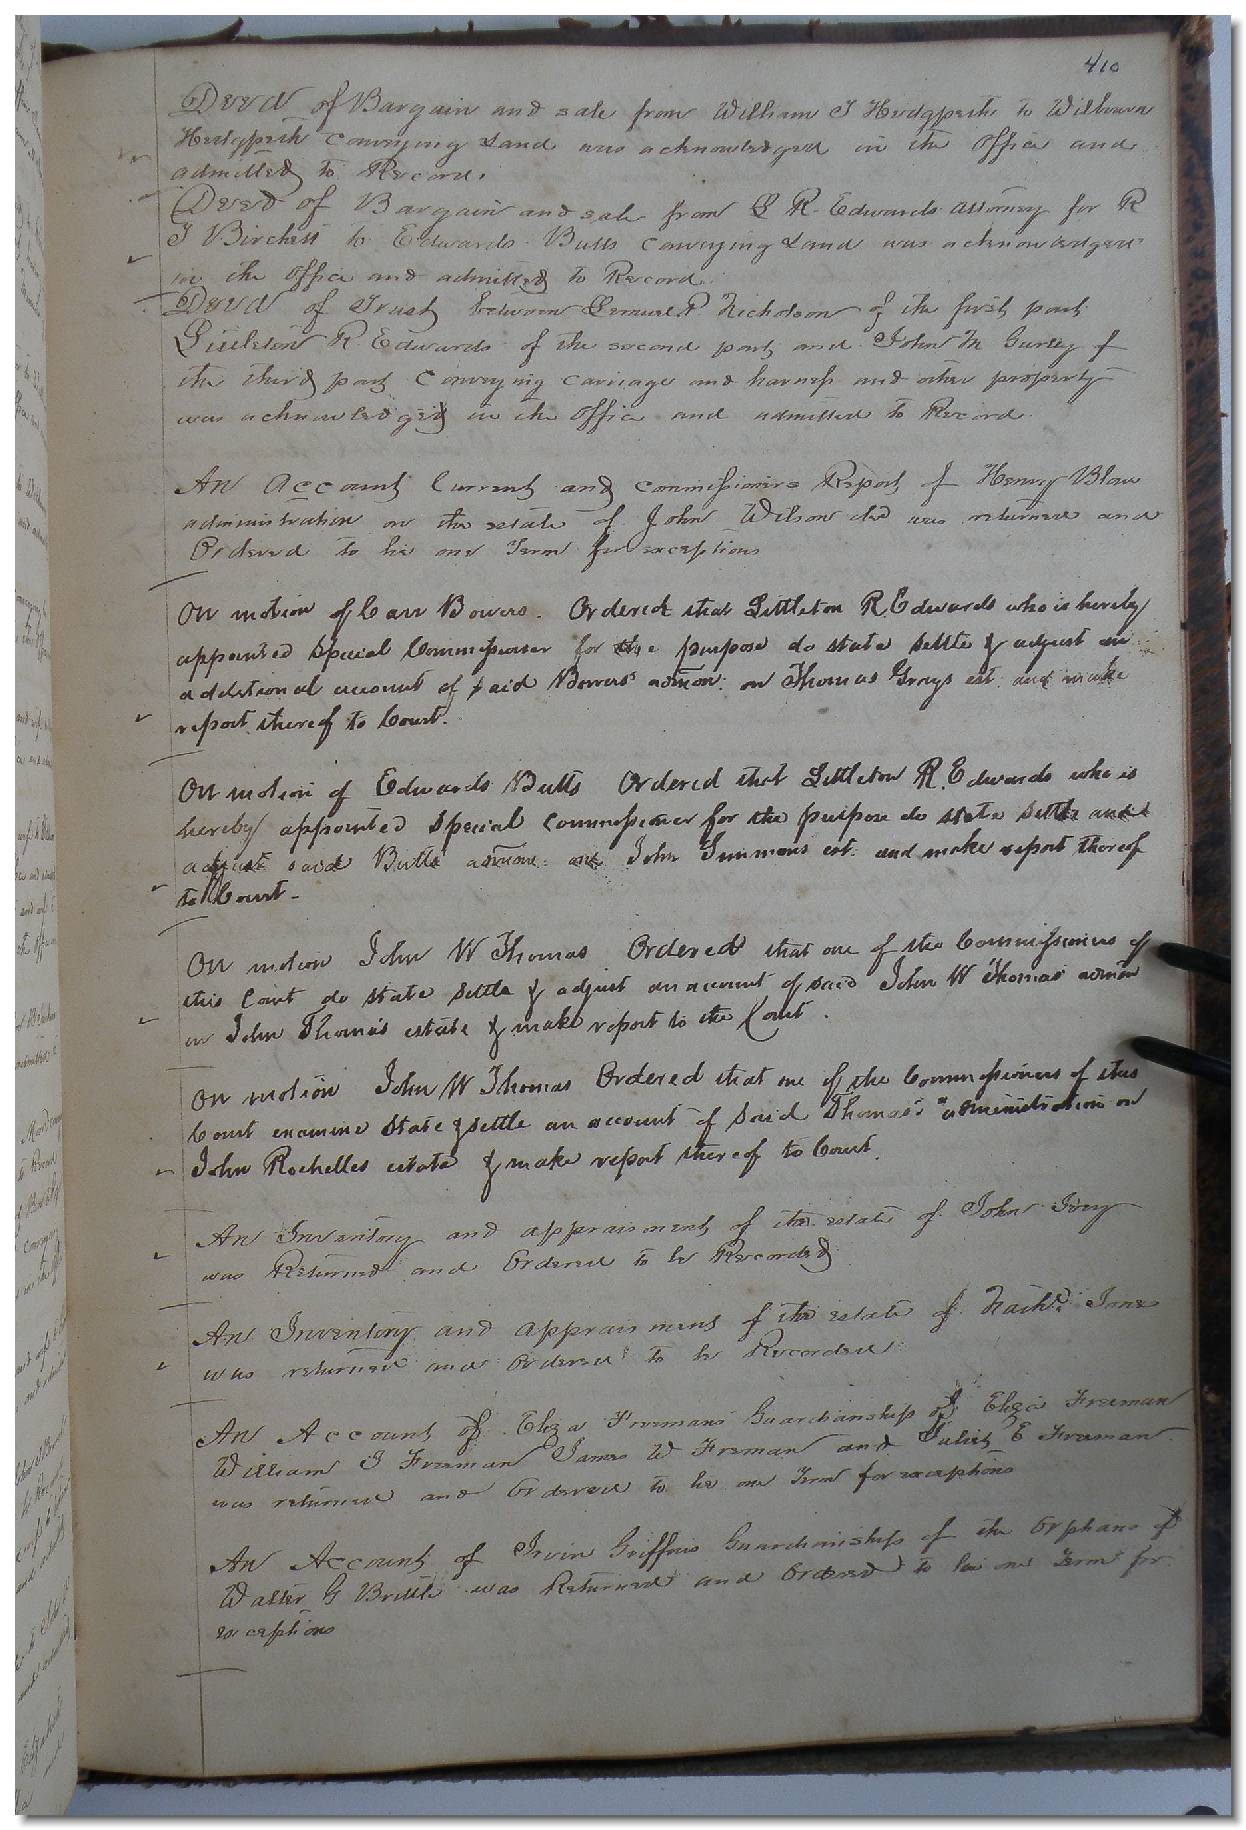 410
Deed of Bargain and sale from William J Hedgpeth to Wilburn
Hedgpeth Conveying Land was acknowledged in the Office and
admitted to Record.
Deed of Bargain and sale from L R Edwards attorney for R
J Birchett to Edwards Butts Conveying Land was acknowledged
in the Office and admitted to Record
Deed of Trust between Lemuel P Nicholson of the first part
Littleton R Edwards of the second part and John M Gurley of
the third part Conveying carriage and harness and other property
was acknowledged in the Office and admitted to Record.
An Account Current and commissioners Report of Henry Blow
administration on the estate of John Wilson decd was returned and
Ordered to lie one Term for exceptions
On motion of Carr Bowers. Ordered that Littleton R. Edwards who is hereby
appointed Special Commissioner for the purpose do state settle & adjust an
additional account of said Bowers' admon: on Thomas Grays est. and make
report thereof to Court.
On motion of Edwards Butts Ordered that Littleton R. Edwards who is
hereby appointed Special Commissioner for the purpose do state settle and
adjust said Butts admon: on John Simmons est. and make report thereof
to Court-
On motion John W Thomas Ordered that one of the Commissioners of
this Court do state settle & adjust an account of said John W Thomas' admon
on John Thomas's estate & make report to the Court.
On motion John W Thomas Ordered that one of the Commissioners of this
Court examine State & settle an account of said Thomas's administration on
John Rochelles estate & make report thereof to Court.
An Inventory and appraisment of the estate of John Ivey
was Returned and Ordered to be Recorded
An Inventory and appraisment of the estate of Nathl. Jones
was returned and Ordered to be Recorded
An Account of Eliza Freemans Guardianship of Eliza Freeman
William J Freeman James W Freman and Juliet E Freeman
was returned and Ordered to lie one Term for exceptions
An Account of Irvin Griffins Guardianship of the Orphans of
Walter G Brittle was Returned and Ordered to lie one Term for
exceptions